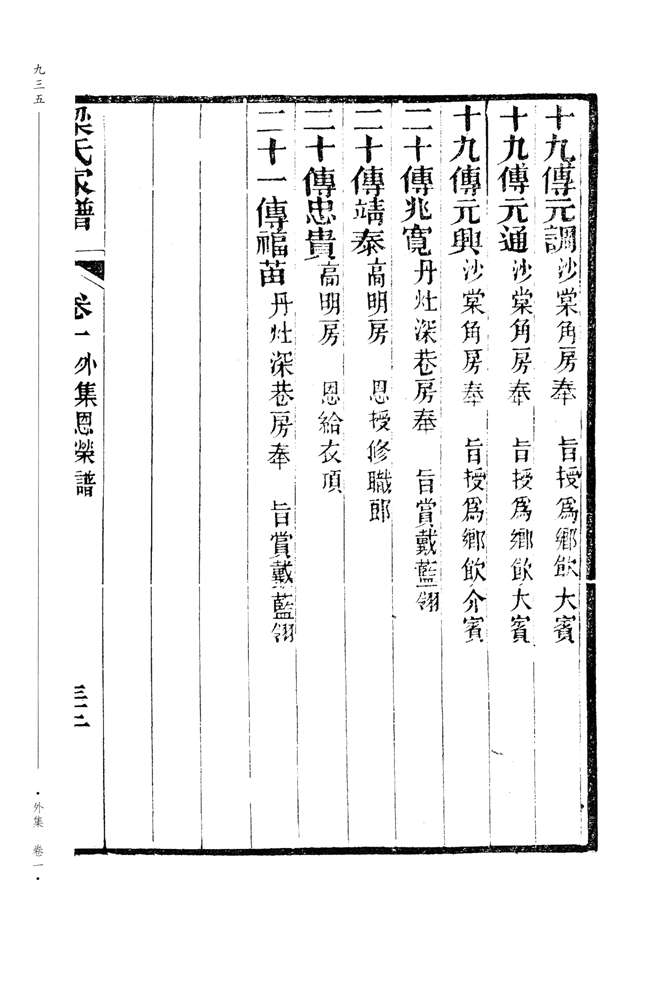 十九傳元調沙棠角房奉　旨授爲鄉飲大賓
十九傳元通沙棠角房奉　旨授爲鄉飲大賓
十九傳元興沙棠角房奉　旨授爲鄉飲介賓
二十傳兆寬丹灶深巷房奉　旨賞戴藍翎
二十傳靖泰高明房　恩授修職郎
二十傳忠貴高明房　恩給衣頂
二十一傳福苗丹灶深巷房奉　旨賞戴藍翎
梁氏家譜　卷一　外集恩榮譜　三十二
九三五
·外集　卷一·